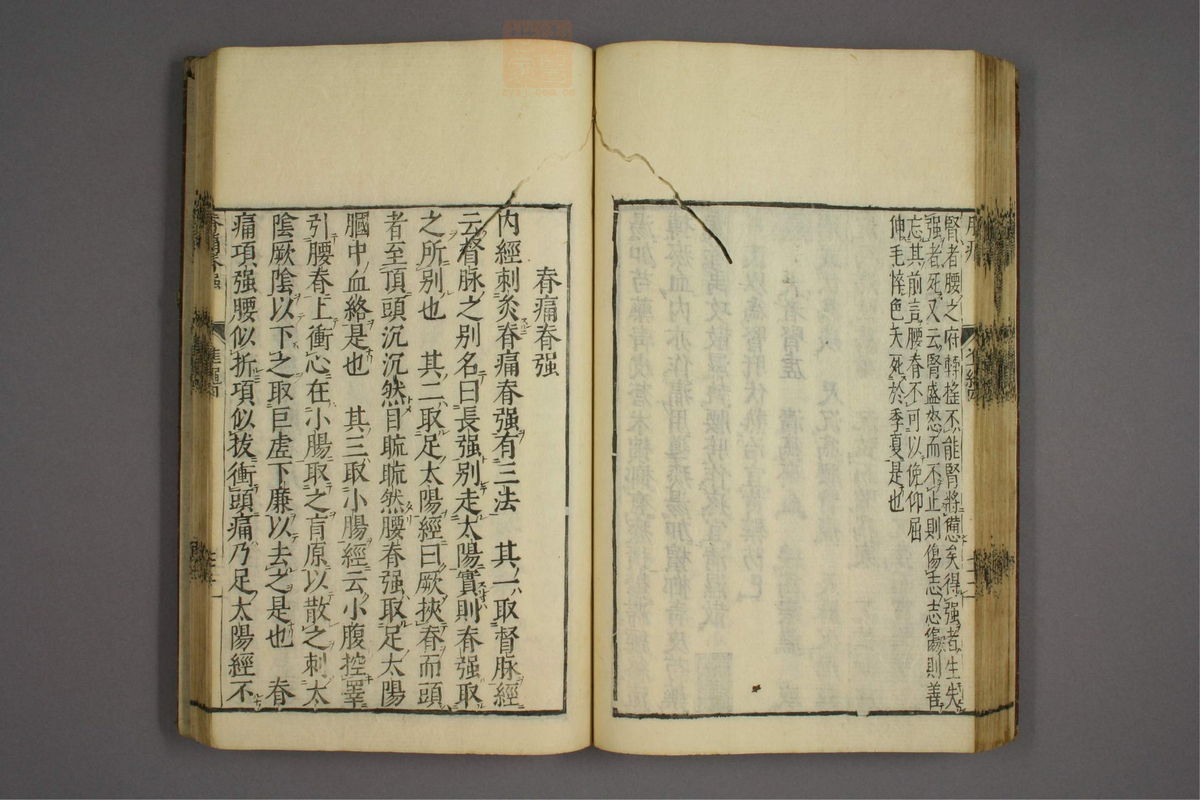 腎者腰之府轉搖不能腎將憊矣得强者生失
强者死又云腎盛怒而不止則傷志志傷則善
忘其前言腰脊不可以俛仰屈
伸毛悴色夭死於季夏是也
脊痛脊强
内經刺灸脊痛脊强有三法　其一取督脉經
云督脉之别名曰長强别走太陽實則脊强取
之所别也　其二取足太陽經曰厥挾脊而頭
者至頂頭沉沉然目䀮䀮然腰脊强取足太陽
膕中血絡是也　其三取小腸經云小腹控睪
引腰脊上衝心在小腸取之肓原以散之刺太
陰厥陰以下之取巨虚下廉以去之是也　脊
痛項强腰似折項似拔衝頭痛乃足太陽經不